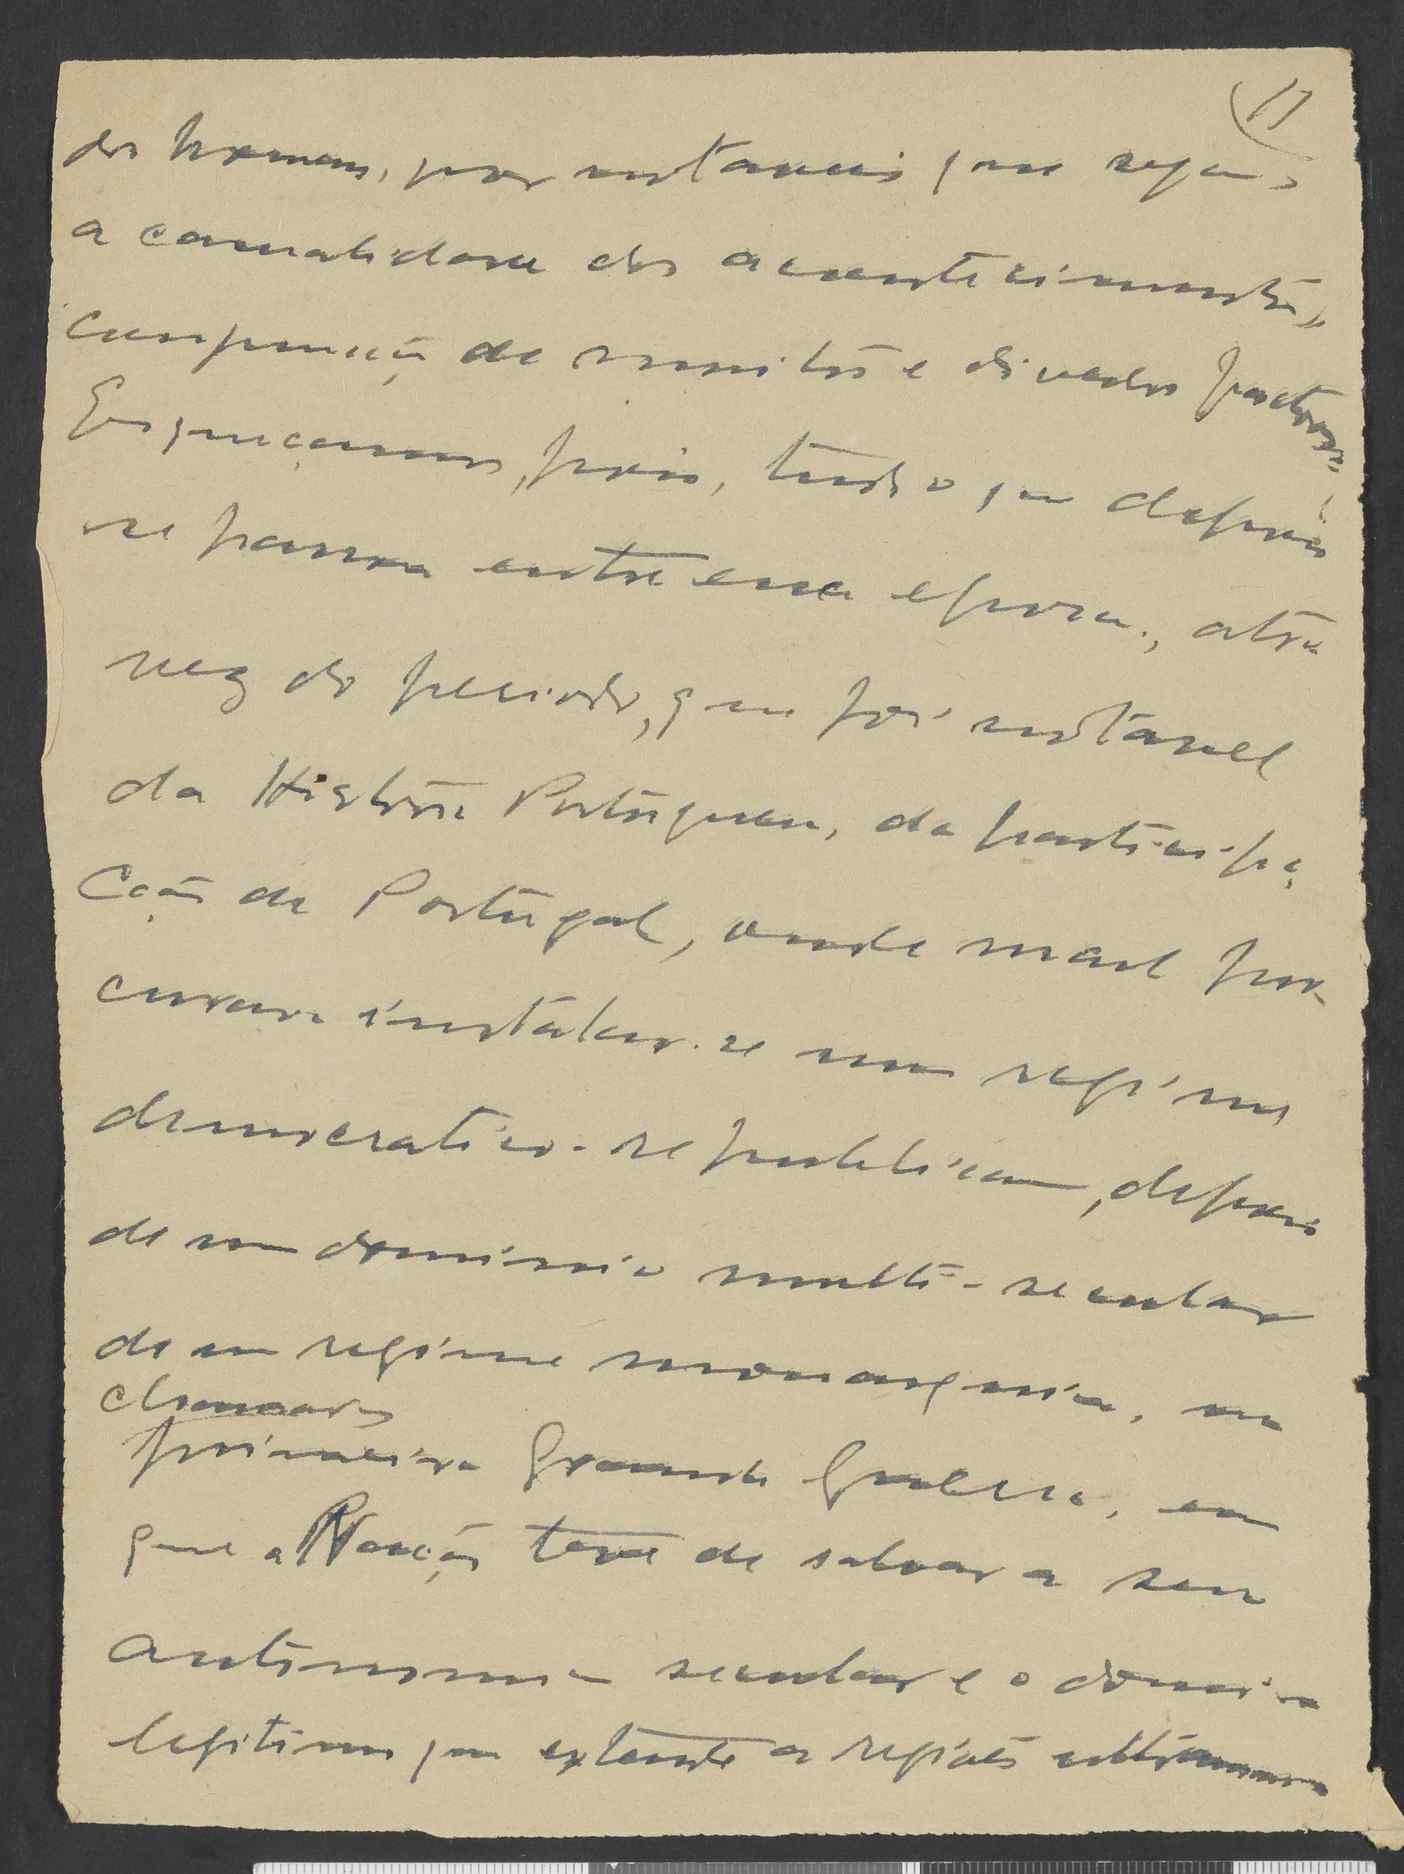 11
dos homens, por notaveis que sejam,
a causalidade dos acontecimentos,
conjunção de muitos e diversos factores.
Esqueçamos, pois, tudo o que depois
se passou entre essa epoca, atra
vez do periodo, que foi notavel
da Historia Portuguesa, da participa
ção de Portugal, onde mal pro-
curava instalar-se um regime
democratico-republicano, depois
de um dominio multi-secular
de um regime monarquico, na
chamada
primeira Grande Guerra, em
que a Nação teve de salvar a sua
autonomia secular e o dominio
legitimo que extende a regiões ultramarinas